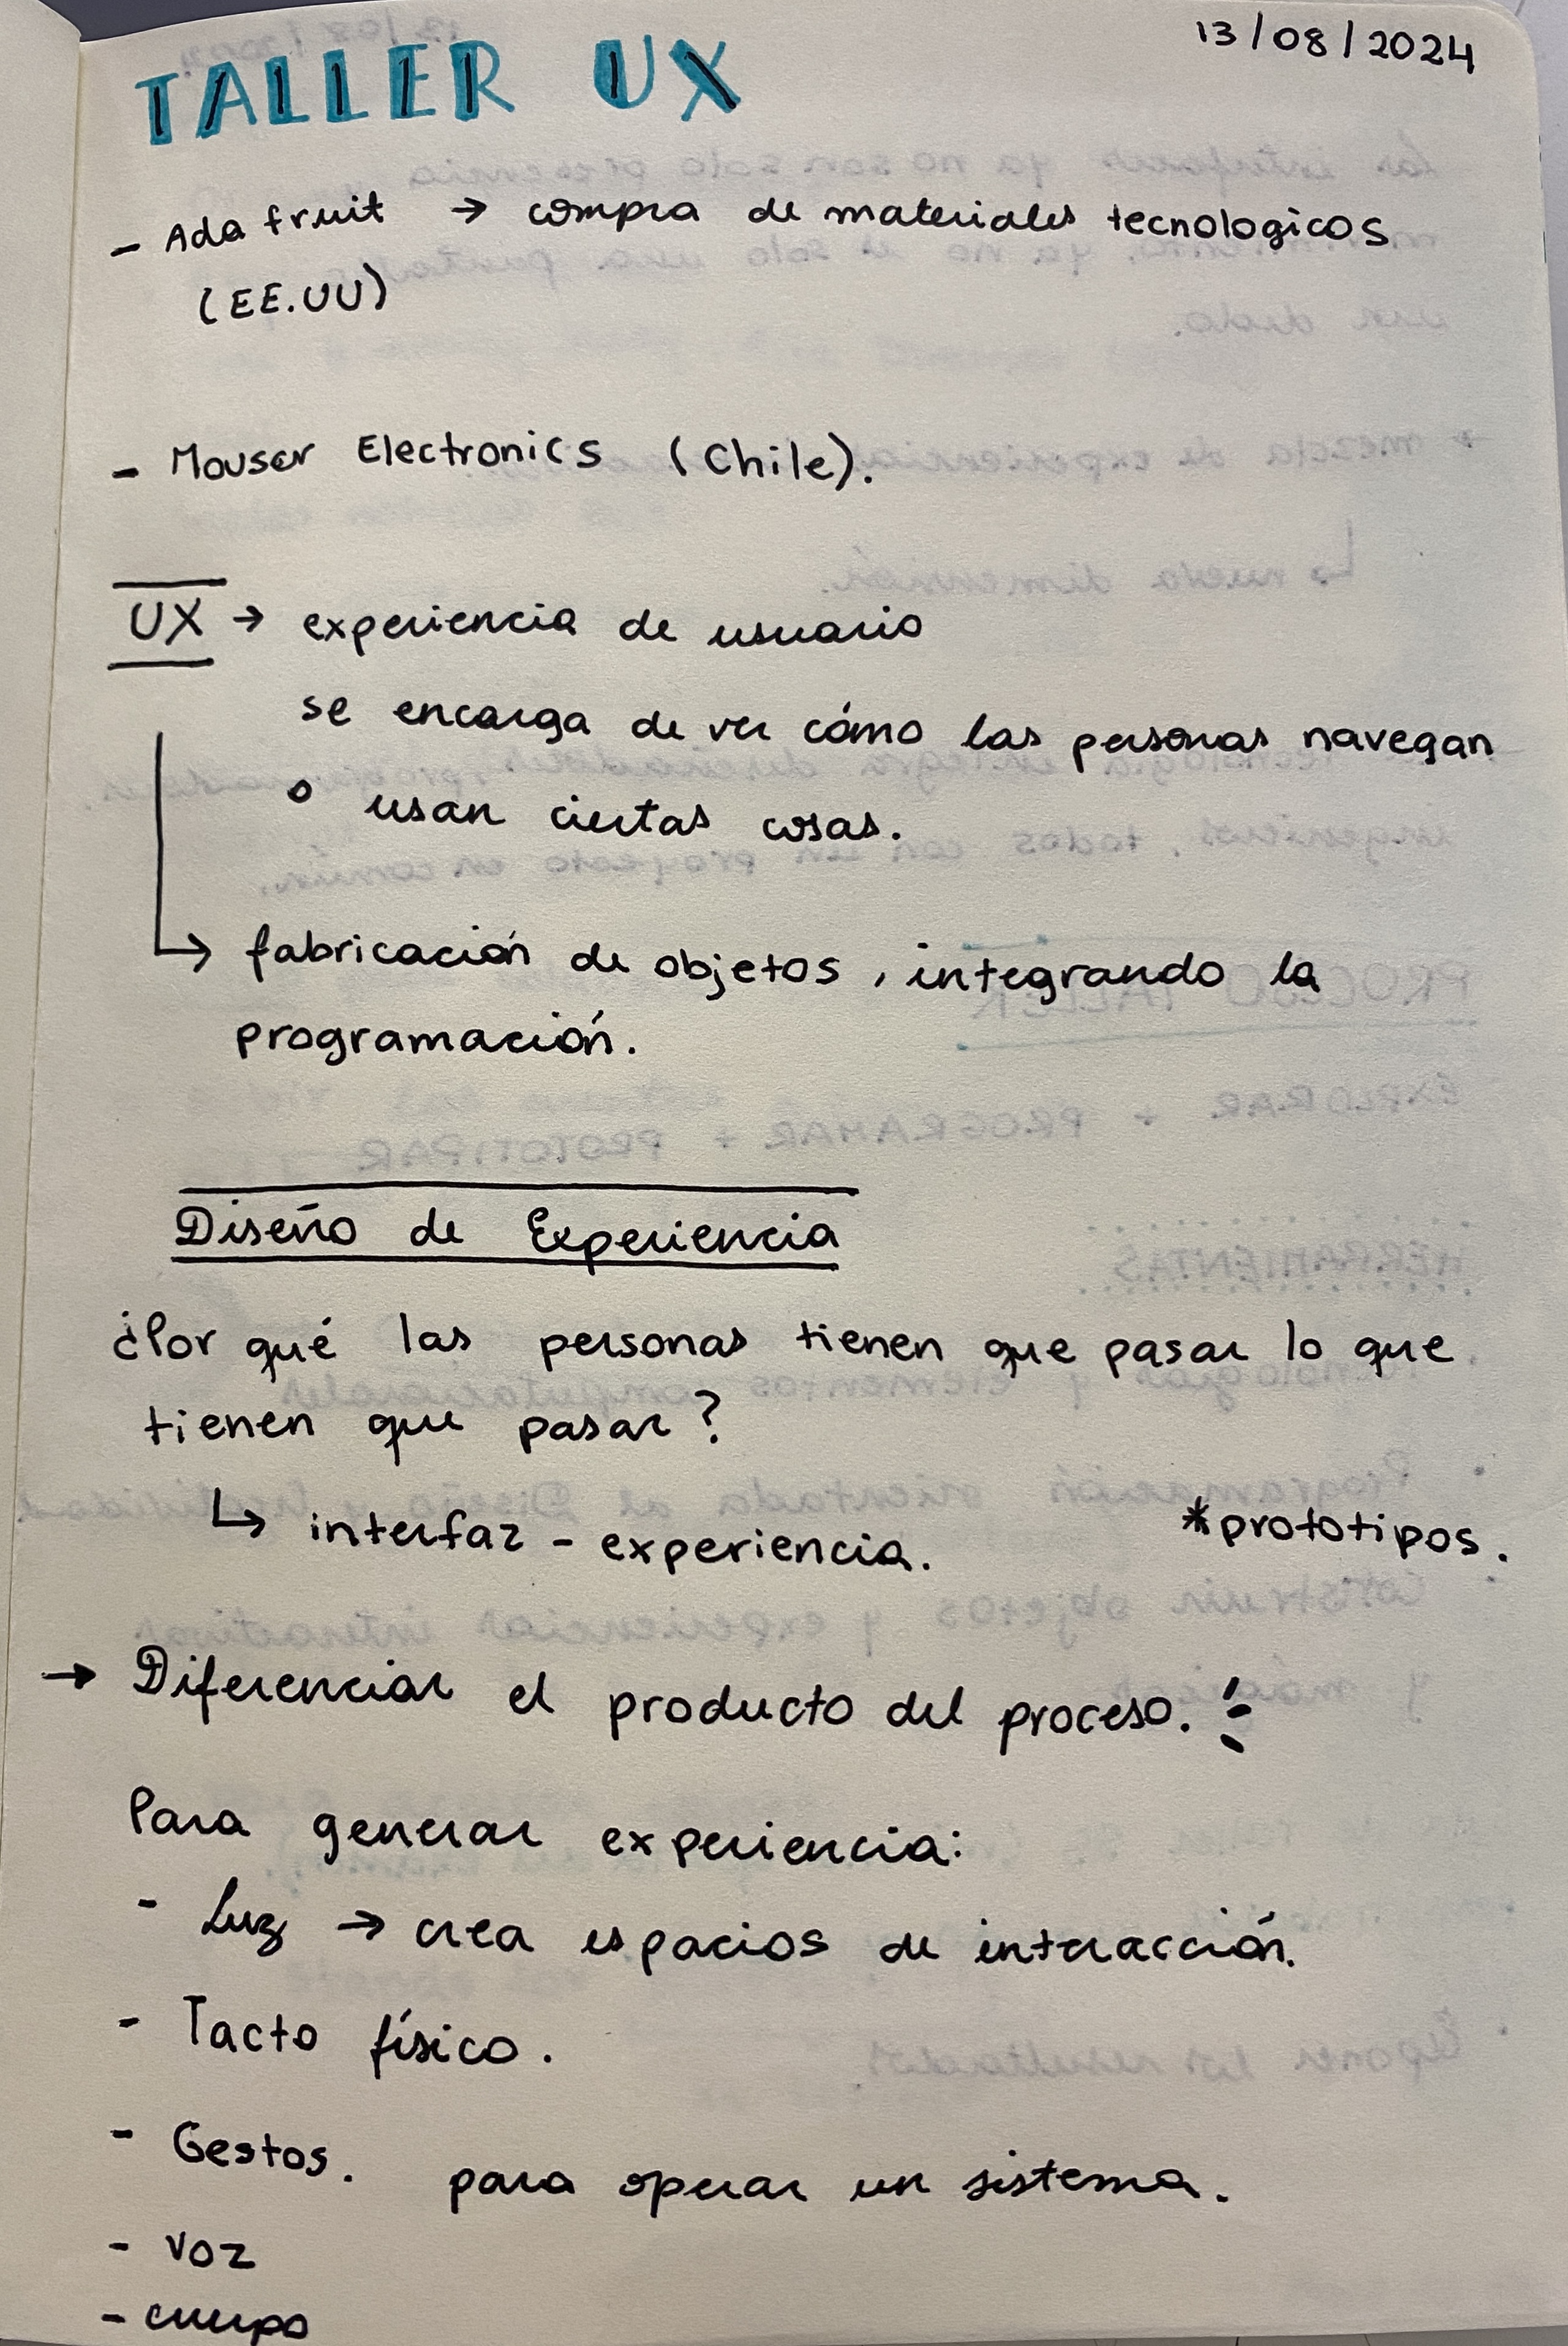 13/08/2024
TALLER UX
- Adafruit → compra de materiales tecnologicos
(EE.UU)
- Mouser Electronics (Chile).
UX → experiencia de usuario
se encarga de ver cómo las personas navegan
o usan ciertas cosas.
↳ fabricación de objetos, integrando la
programación.
Diseño de Experiencia
¿Por qué las personas tienen que pasar lo que
tienen que pasar?
↳ interfaz - experiencia. *prototipos.
→ Diferenciar el producto del proceso.
Para generar experiencia:
- Luz → crea espacios de interacción.
- Tacto físico.
- Gestos. para operar un sistema.
- Voz
- cuerpo